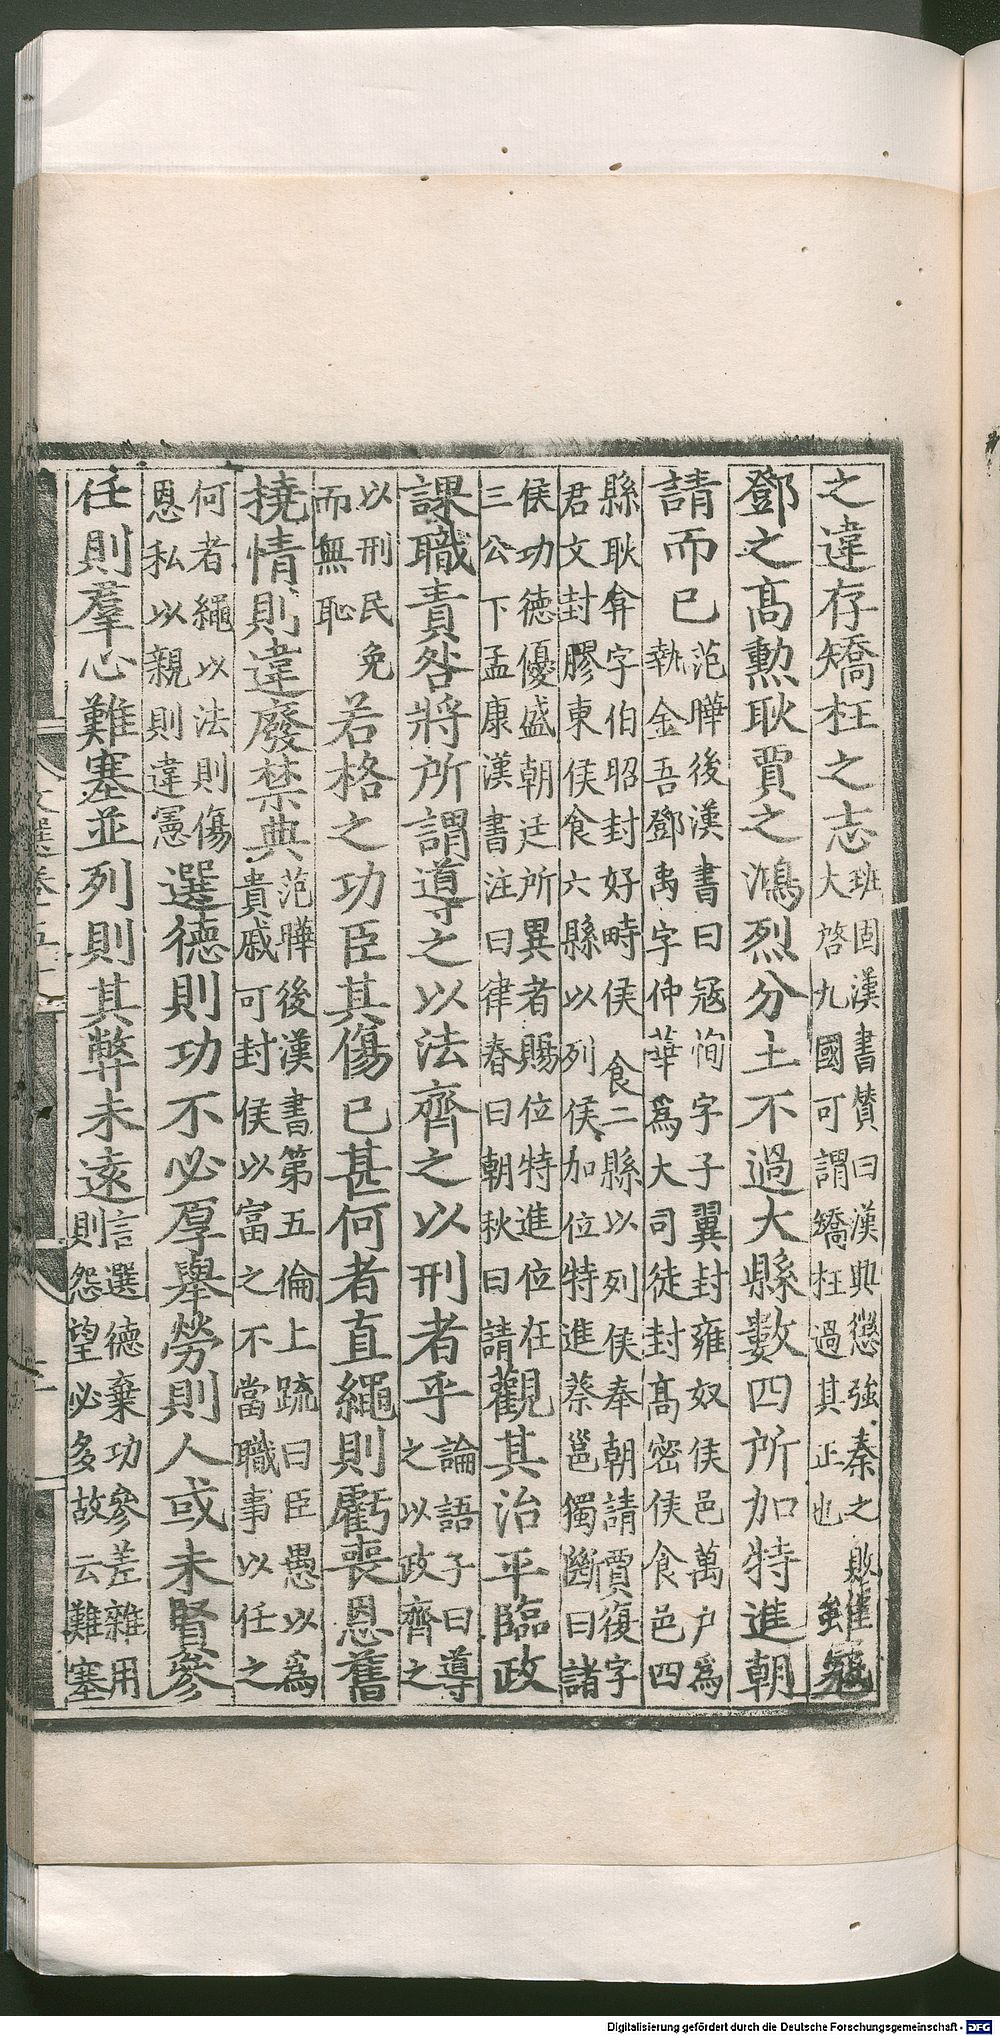 之違存矯枉之志班固漢書贊曰漢興懲強秦之敗
大啓九國可謂矯枉過其正也雖寇
鄧之高勲耿賈之鴻烈分土不過大縣數四所加特進朝
請而已范曄後漢書曰寇恂字子翼封雍奴侯邑萬户爲
執金吾鄧禹字仲華爲大司徒封高密侯食邑四
縣耿弇字伯昭封好畤侯食二縣以列侯奉朝請賈復字
君文封膠東侯食六縣以列侯加位特進蔡邕獨斷曰諸
侯功德優盛朝廷所異者賜位特進位在
三公下孟康漢書注曰律春曰朝秋曰請觀其治平臨政
課職責咎將所謂導之以法齊之以刑者乎論語子曰導
之以政齊之
以刑民免
而無恥若格之功臣其傷已甚何者直繩則虧喪恩舊
撓情則違廢禁典范曄後漢書第五倫上疏曰臣愚以爲
貴戚可封侯以富之不當職事以任之
何者繩以法則傷
恩私以親則違憲選德則功不必厚舉勞則人或未賢參
任則羣心難塞並列則其弊未遠言選德棄功參差雜用
則怨望必多故云難塞
文選卷五十
Digitalisierung gefördert durch die Deutsche Forschungsgemeinschaft - DFG